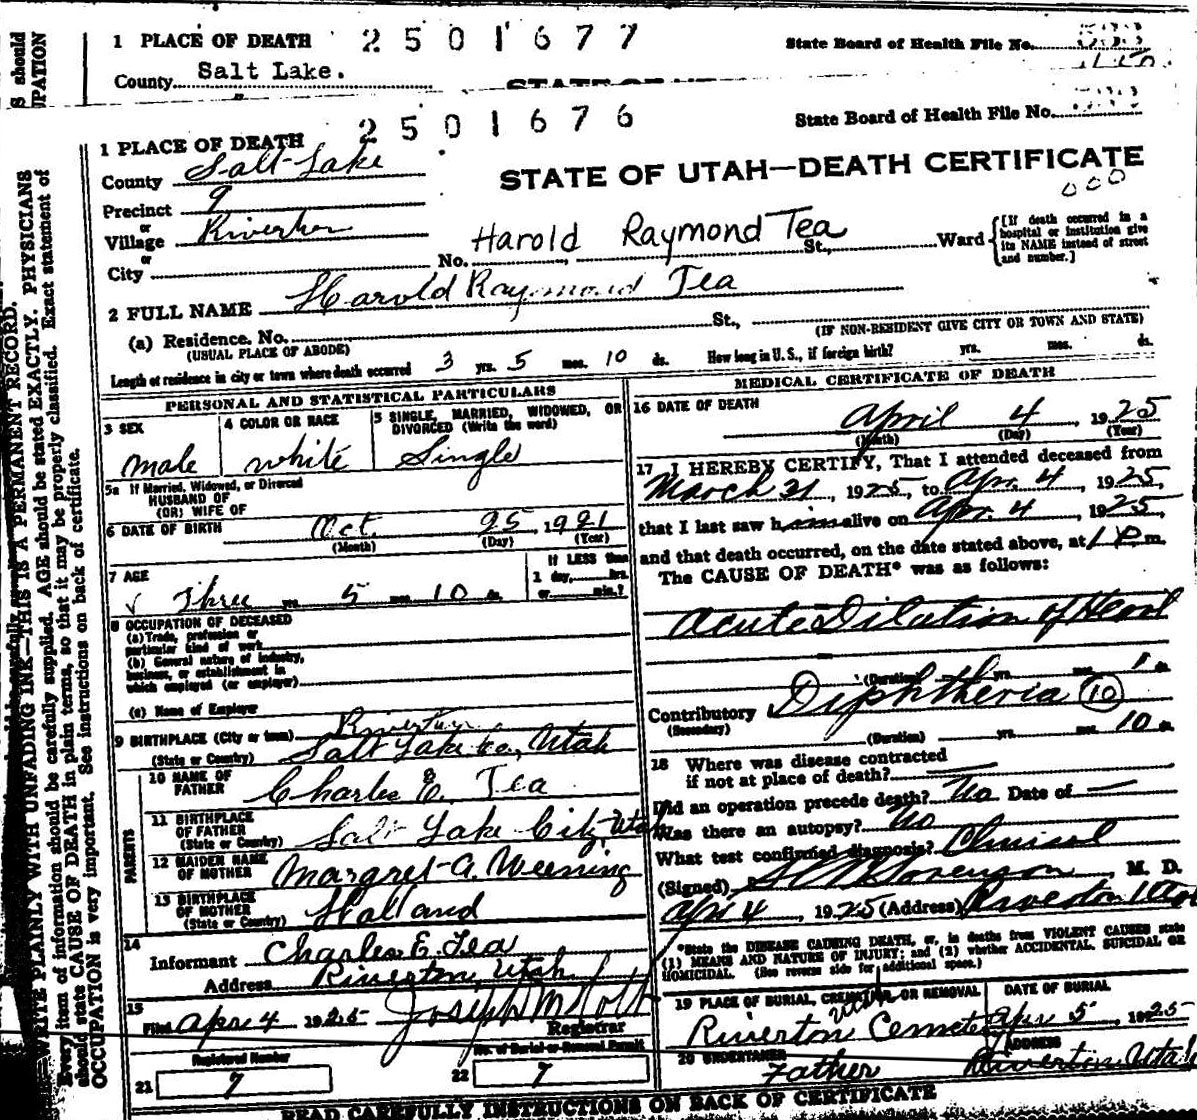 1 PLACE OF DEATH 2501677 State Board of Health File No.
County Salt Lake.
2501676
State Board of Health File No.
1 PLACE OF DEATH
County Salt Lake
STATE OF UTAH—DEATH CERTIFICATE
000
Precinct 9
or
Village Riverton
or
City
No. Harold Raymond Tea St., Ward
[If death occurred in a hospital or institution give its NAME instead of street and number.]
2 FULL NAME Harold Raymond Tea
(a) Residence. No. St.,
(USUAL PLACE OF ABODE) (IF NON-RESIDENT GIVE CITY OR TOWN AND STATE)
Length of residence in city or town where death occurred 3 yrs. 5 mos. 10 ds. How long in U. S., if foreign birth? yrs. mos. ds.
PERSONAL AND STATISTICAL PARTICULARS
3 SEX
male
4 COLOR OR RACE
white
5 SINGLE, MARRIED, WIDOWED, OR DIVORCED (Write the word)
Single
5a If Married, Widowed, or Divorced
HUSBAND OF
(OR) WIFE OF
6 DATE OF BIRTH Oct. 25, 1921
(Month) (Day) (Year)
7 AGE
Three yrs. 5 mos. 10 ds.
If LESS than
1 day, hrs.
or min.?
8 OCCUPATION OF DECEASED
(a) Trade, profession or
particular kind of work
(b) General nature of industry,
business, or establishment in
which employed (or employer)
(c) Name of Employer
9 BIRTHPLACE (City or town) Riverton
(State or Country) Salt Lake Co, Utah
PARENTS
10 NAME OF FATHER Charles E. Tea
11 BIRTHPLACE OF FATHER
(State or Country) Salt Lake City, Utah
12 MAIDEN NAME OF MOTHER Margret A. Weening
13 BIRTHPLACE OF MOTHER
(State or Country) Holland
14
Informant Charles E. Tea
Address Riverton, Utah
15
Filed Apr 4 1925
Registrar
Registered Number
21 9
No. of Burial or Removal Permit
22 9
MEDICAL CERTIFICATE OF DEATH
16 DATE OF DEATH
April 4, 1925
(Month) (Day) (Year)
17 I HEREBY CERTIFY, That I attended deceased from
March 21, 1925, to Apr. 4, 1925,
that I last saw him alive on Apr. 4, 1925,
and that death occurred, on the date stated above, at 1 P.m.
The CAUSE OF DEATH* was as follows:
Acute Dilation of Heart
(Duration) yrs. mos. 1 ds.
Contributory Diphtheria 10
(Secondary)
(Duration) yrs. mos. 10 ds.
18 Where was disease contracted
if not at place of death?
Did an operation precede death? No Date of
Was there an autopsy? No
What test confirmed diagnosis? Clinical
(Signed) Sorenson, M. D.
Apr 4, 1925 (Address) Riverton Utah
*State the DISEASE CAUSING DEATH, or, in deaths from VIOLENT CAUSES state
(1) MEANS AND NATURE OF INJURY; and (2) whether ACCIDENTAL, SUICIDAL OR
HOMICIDAL. (See reverse side for additional space.)
19 PLACE OF BURIAL, CREMATION OR REMOVAL
Utah
Riverton Cemetery
DATE OF BURIAL
Apr 5 1925
20 UNDERTAKER
Father
ADDRESS
Riverton, Utah
READ CAREFULLY INSTRUCTIONS ON BACK OF CERTIFICATE
WRITE PLAINLY WITH UNFADING INK—THIS IS A PERMANENT RECORD.
Every item of information should be carefully supplied. AGE should be stated EXACTLY. PHYSICIANS
should state CAUSE OF DEATH in plain terms, so that it may be properly classified. Exact statement of
OCCUPATION is very important. See instructions on back of certificate.